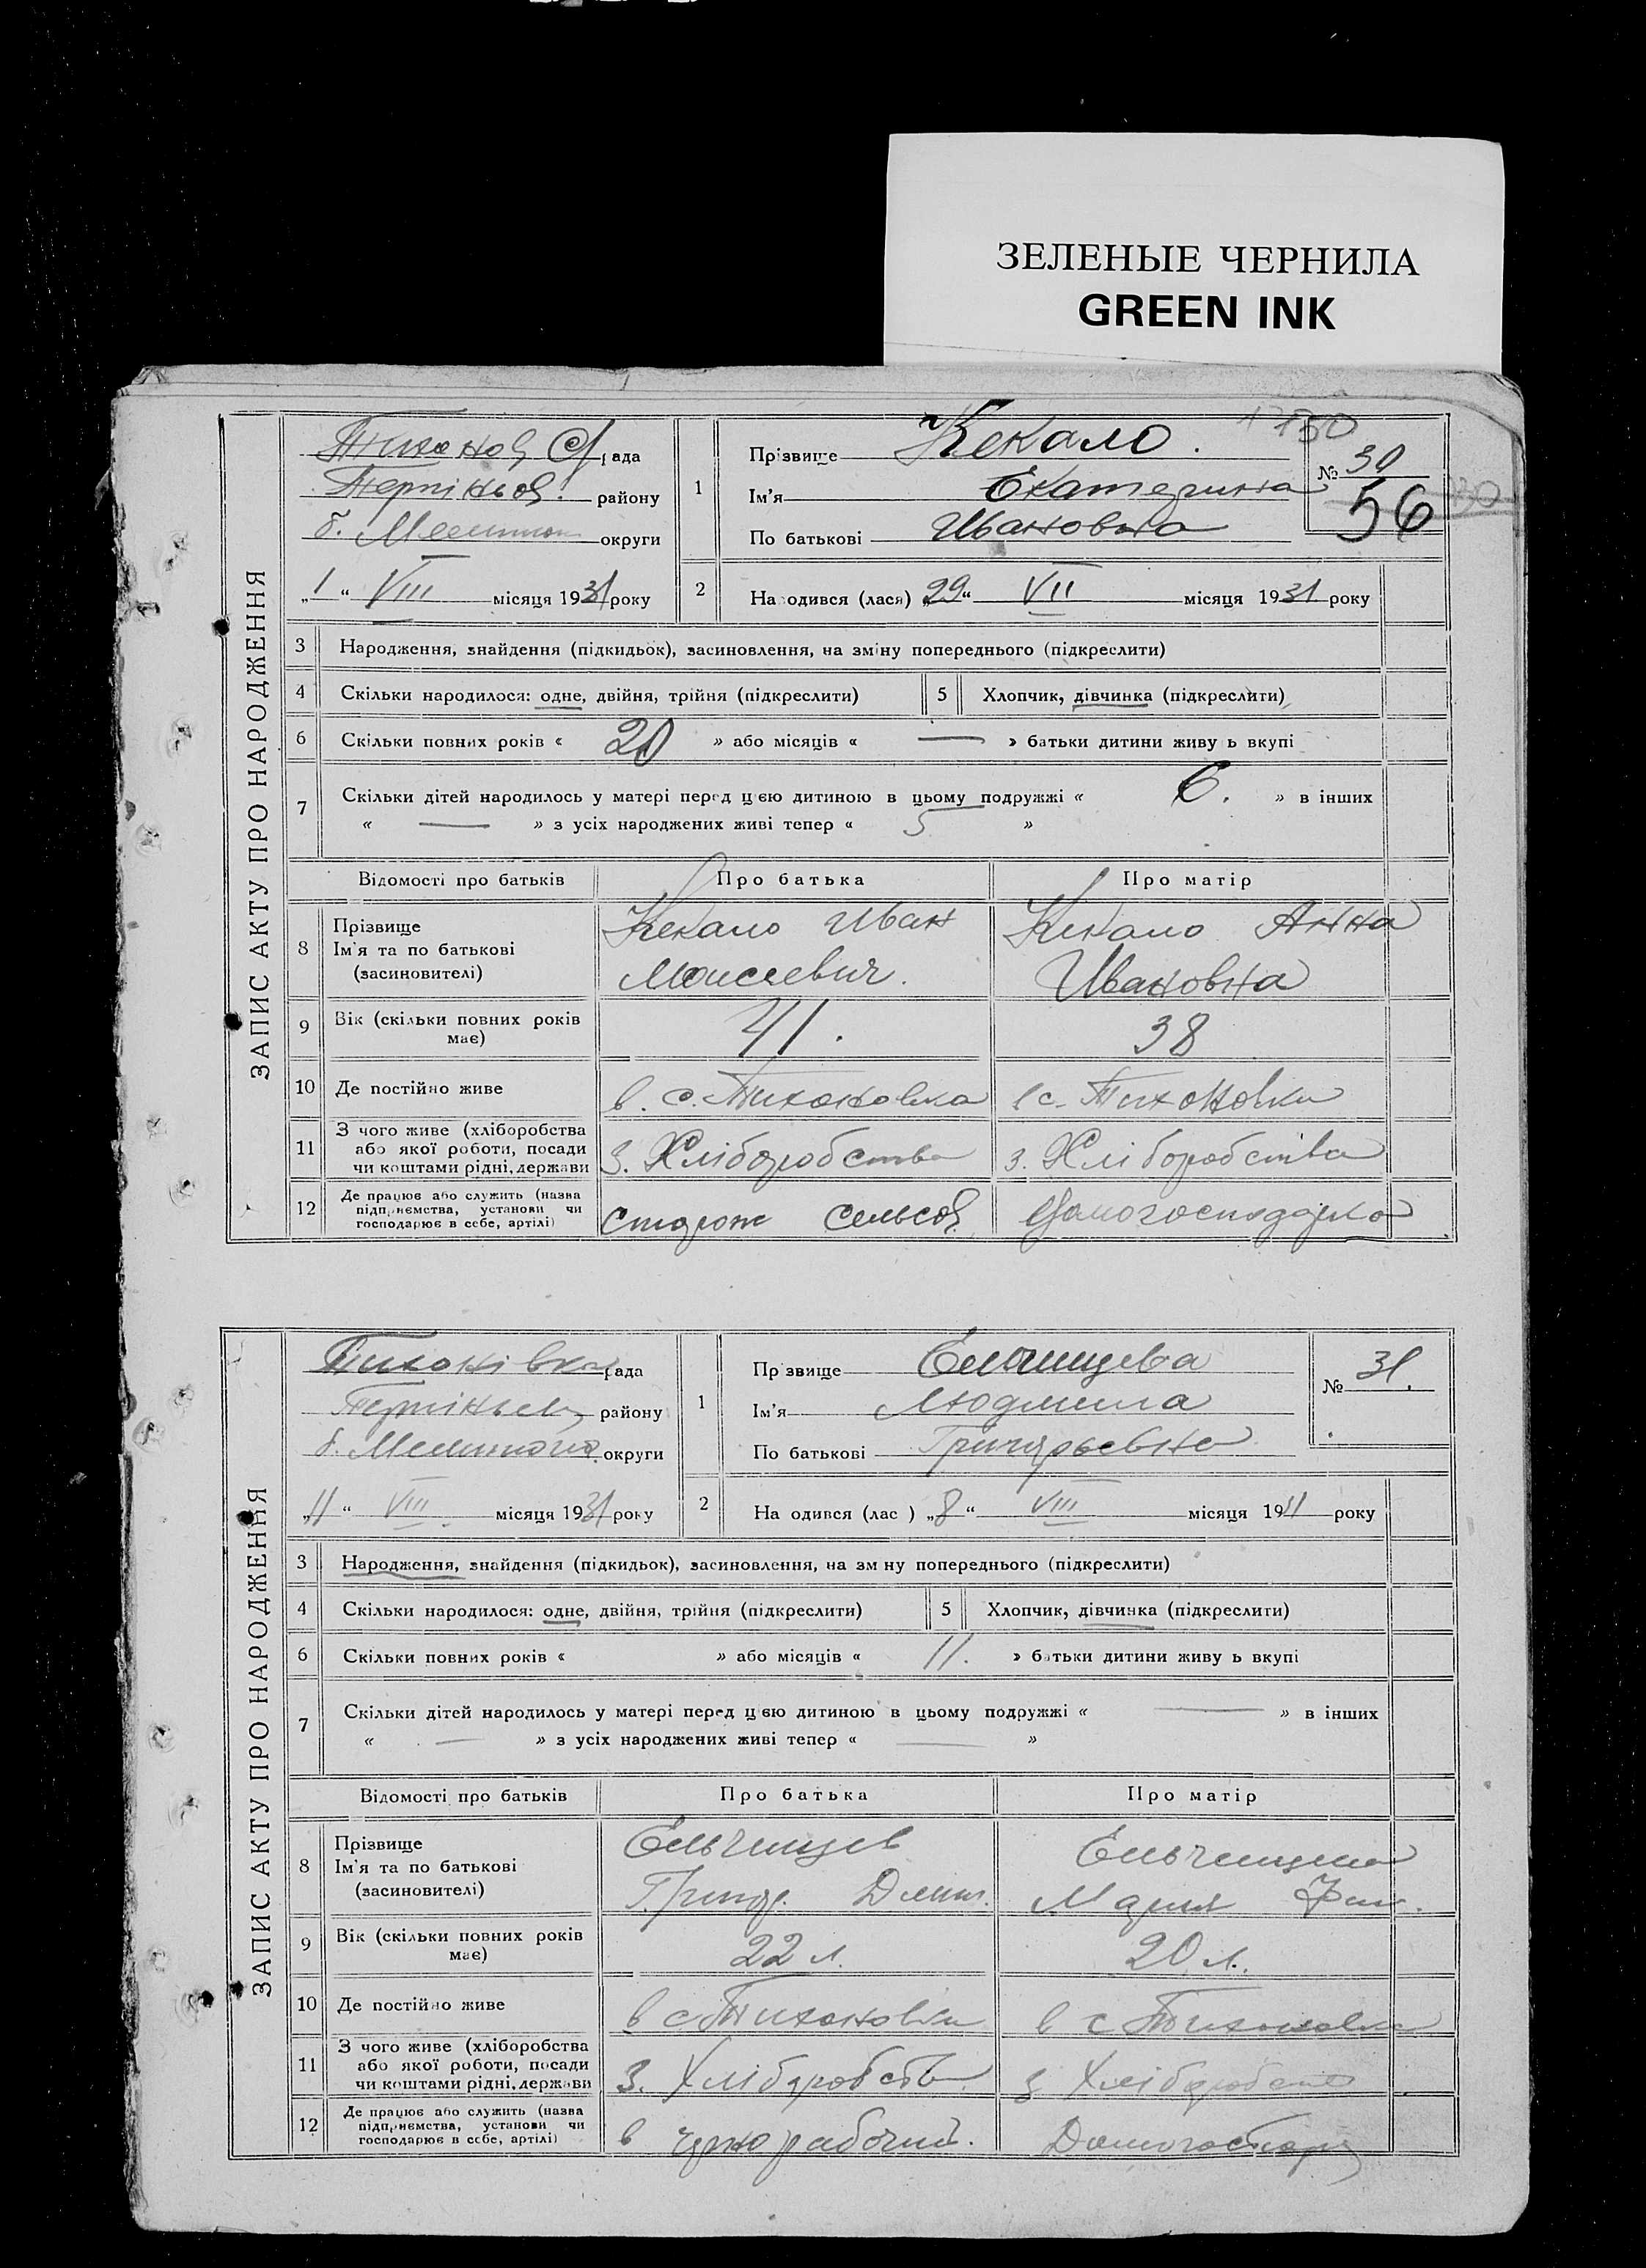 ЗЕЛЕНЫЕ ЧЕРНИЛА
GREEN INK
ЗАПИС АКТУ ПРО НАРОДЖЕННЯ
Тихонов С/рада
району
б. округи
„1“ VIII місяця 1931 року
1 Прізвище Кекало.
Ім'я Екатерина
По батькові Ивановна
№ 30
56
2 На одився (лася) „29“ VII місяця 1931 року
3 Народження, знайдення (підкидьок), засиновлення, на зміну попереднього (підкреслити)
4 Скільки народилося: одне, двійня, трійня (підкреслити)
5 Хлопчик, дівчинка (підкреслити)
6 Скільки повних років « 20 » або місяців « — » батьки дитини живу ь вкупі
7 Скільки дітей народилось у матері перед цією дитиною в цьому подружжі « 6. » в інших
« — » з усіх народжених живі тепер « 5 »
Відомості про батьків Про батька Про матір
8 Прізвище
Ім'я та по батькові
(засиновителі)
Кекало Иван
Моисеевич.
Кекало Анна
Ивановна
9 Вік (скільки повних років
має)
41. 38
10 Де постійно живе в. с. Тихоновка в с. Тихоновки
11 З чого живе (хліборобства
або якої роботи, посади
чи коштами рідні, держави
З. Хліборобства з. Хліборобства
12 Де працює або служить (назва
підприємства, установи чи
господарює в себе, артілі)
Сторож сельсов. Домогосподарка
ЗАПИС АКТУ ПРО НАРОДЖЕННЯ
Тихонівка рада
району
б. округи
„11“ VIII місяця 1931 року
1 Пр звище
Ім'я Людмила
По батькові Григорьевна
№ 31.
2 На одився (лас ) „8“ VIII місяця 19 року
3 Народження, знайдення (підкидьок), засиновлення, на зм ну попереднього (підкреслити)
4 Скільки народилося: одне, двійня, трійня (підкреслити)
5 Хлопчик, дівчинка (підкреслити)
6 Скільки повних років « » або місяців « 11. » батьки дитини живу ь вкупі
7 Скільки дітей народилось у матері перед цією дитиною в цьому подружжі « — » в інших
« — » з усіх народжених живі тепер « — »
Відомості про батьків Про батька Про матір
8 Прізвище
Ім'я та по батькові
(засиновителі)
Ельчищев
Григор.
Мария
9 Вік (скільки повних років
має)
22 л. 20 л.
10 Де постійно живе в с Тихоновки в с Тихоновка
11 З чого живе (хліборобства
або якої роботи, посади
чи коштами рідні, держави
З. Хлібороб з Хлібороб
12 Де працює або служить (назва
підприємства, установи чи
господарює в себе, артілі)
в чорнорабочий. Домогоспор